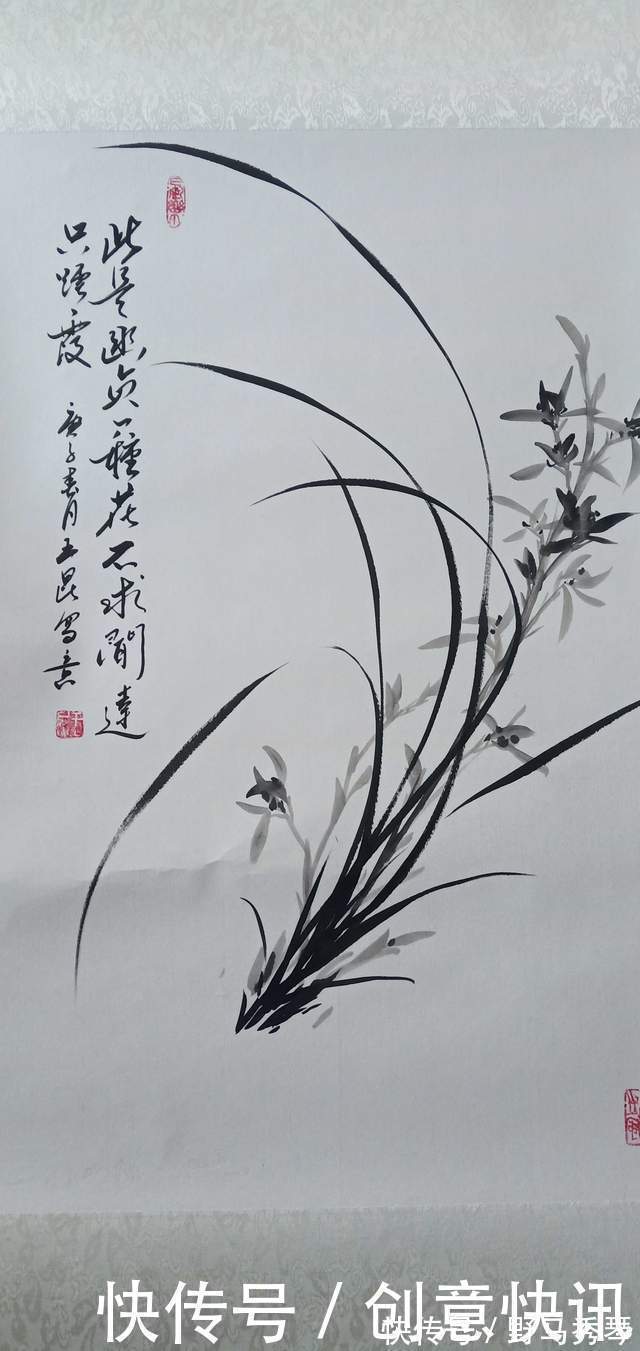 此是幽贞一種花不求闻達
只烟霞 庚子春月王昆写意
快传号 / 创意快讯
快传号 / 野马秀琴